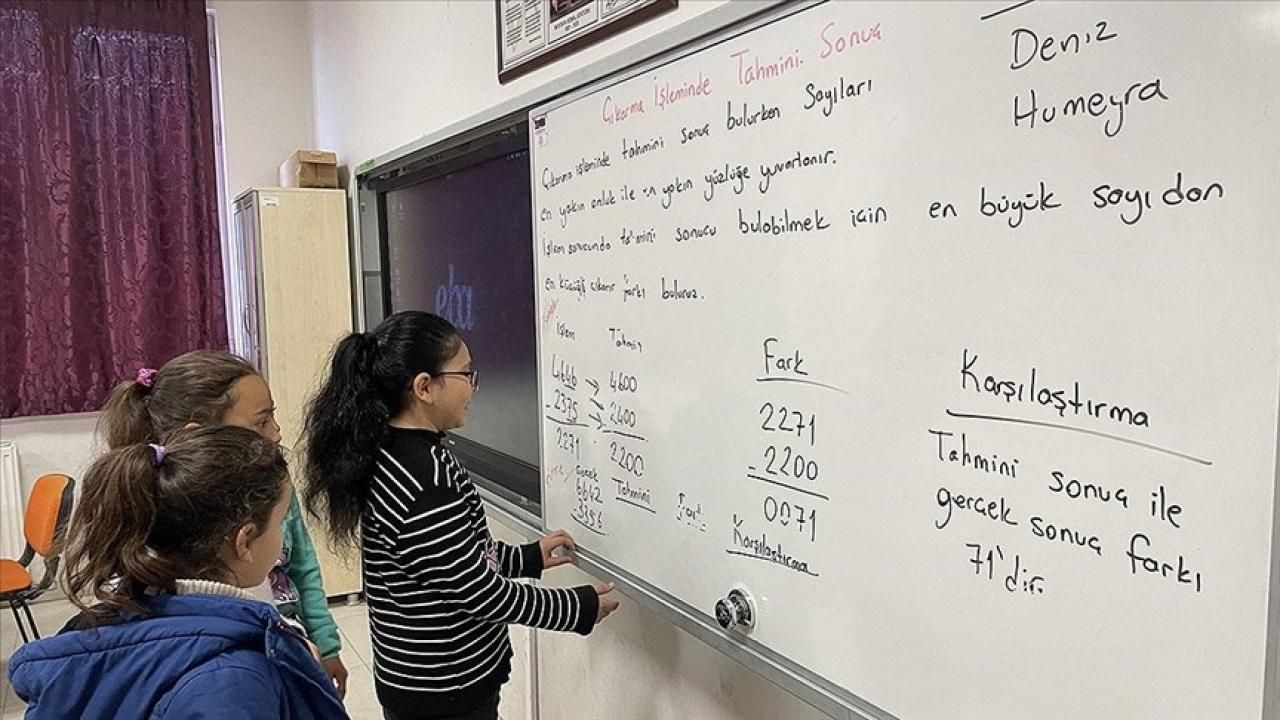 Çıkarma İşleminde Tahmini Sonuç
Çıkarma işleminde tahmini sonuç bulurken Sayıları
en yakın onluk ile en yakın yüzlüğe yuvarlanır.
İşlem sonucunda tahmini sonucu bulabilmek için en büyük sayıdan
en küçüğü çıkarır farkı buluruz.
İşlem Tahmin
4646 → 4600
- 2375 → 2400
2271 2200
Gerçek Tahmini
5642
3356
Fark
2271
- 2200
0071
Karşılaştırma
Karşılaştırma
Tahmini sonuç ile
gerçek sonuç farkı
71'dir.
Deniz
Humeyra
eba